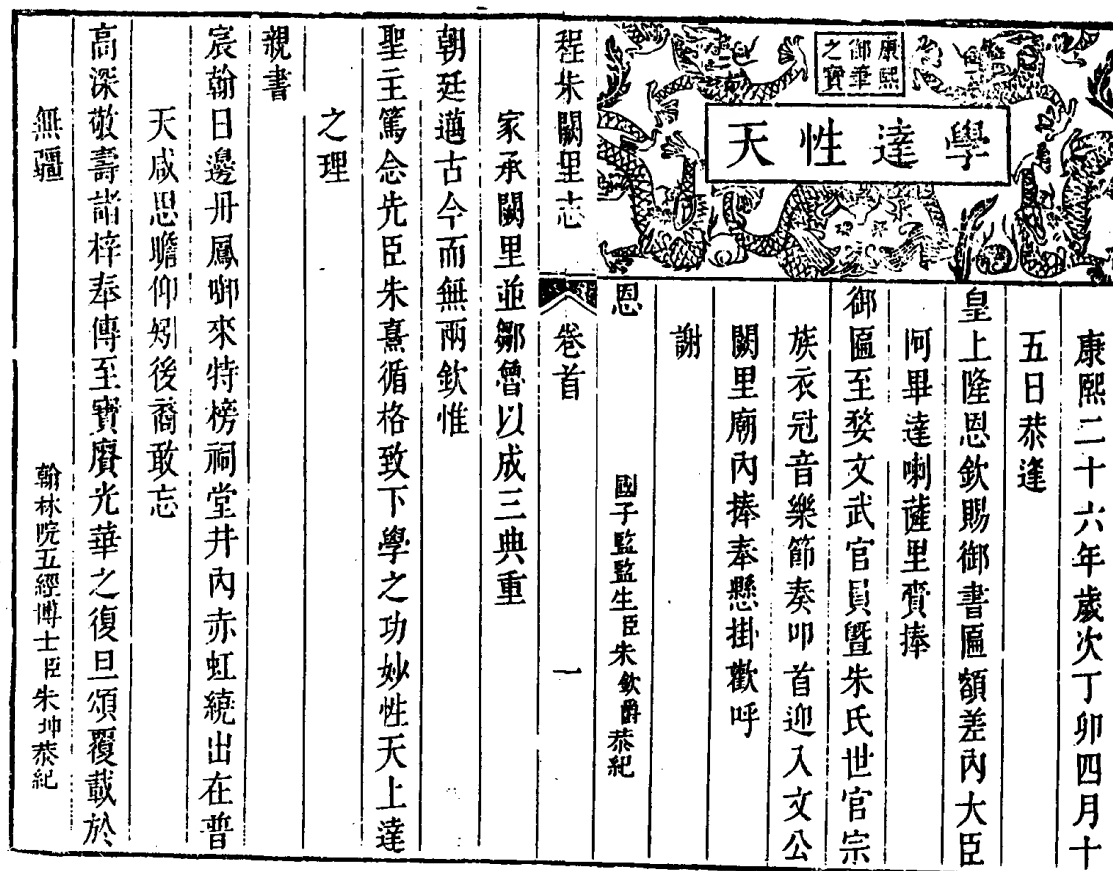 康熙
御筆
之寶
學達性天
康熙二十六年歲次丁卯四月十
五日恭逢
皇上隆恩欽賜御書匾額差內大臣
阿畢達喇薩里賷捧
御匾至婺文武官員暨朱氏世官宗
族衣冠音樂節奏叩首迎入文公
闕里廟內捧奉懸掛歡呼
謝
恩
國子監監生臣朱欽爵恭紀
程朱闕里志
卷首
一
家承闕里並鄒魯以成三典重
朝廷邁古今而無兩欽惟
聖主篤念先臣朱熹循格致下學之功妙性天上達
之理
親書
宸翰日邊丹鳳啣來特榜祠堂井內赤虹繞出在普
天咸思瞻仰矧後裔敢忘
高深敬壽諸梓奉傳至寶賡光華之復旦頌覆載於
無疆
翰林院五經博士臣朱坤恭紀